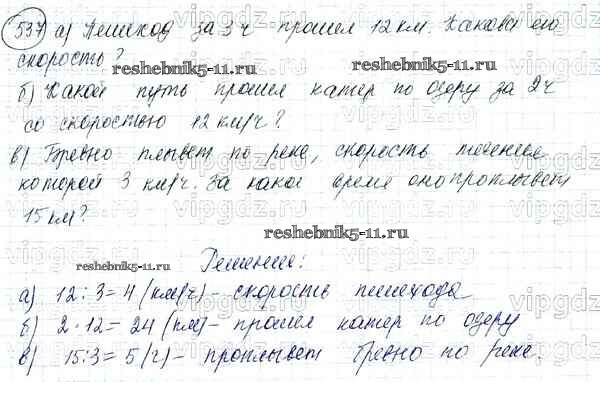 537 а) Пешеход за 3ч прошел 12 км. Какова его
скорость?
reshebnik5-11.ru reshebnik5-11.ru
б) Какой путь прошел катер по озеру за 2ч
со скоростью 12 км/ч?
в) Бревно плывет по реке, скорость течения
которой 3 км/ч. За какое время оно проплывет
15 км?
reshebnik5-11.ru
Решение:
reshebnik5-11.ru
а) 12 : 3 = 4 (км/ч) - скорость пешехода
б) 2 · 12 = 24 (км) - прошел катер по озеру
в) 15 : 3 = 5 (ч) - проплывет бревно по реке.
vipgdz.ru